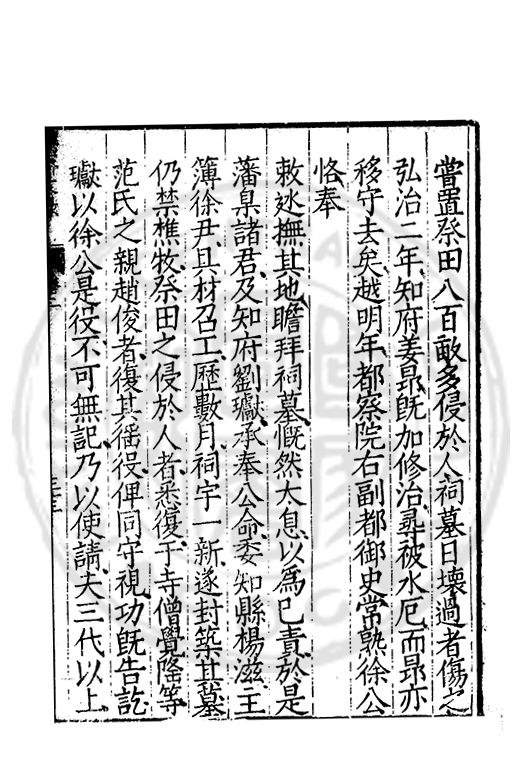 嘗置祭田八百畝多侵於人祠墓日壞過者傷之
弘治二年知府姜昻旣加修治尋被水厄而昻亦
移守去矣越明年都察院右副都御史常熟徐公
恪奉
敕廵撫其地瞻拜祠墓慨然太息以爲已責於是
藩臬諸君及知府劉瓛承奉公命委知縣楊滋主
簿徐尹具材召工歷數月祠宇一新遂封築其墓
仍禁樵牧祭田之侵於人者悉復于寺僧覺隆等
范氏之親趙俊者復其徭役俾同守視功旣告訖
瓛以徐公是役不可無記乃以使請夫三代以上